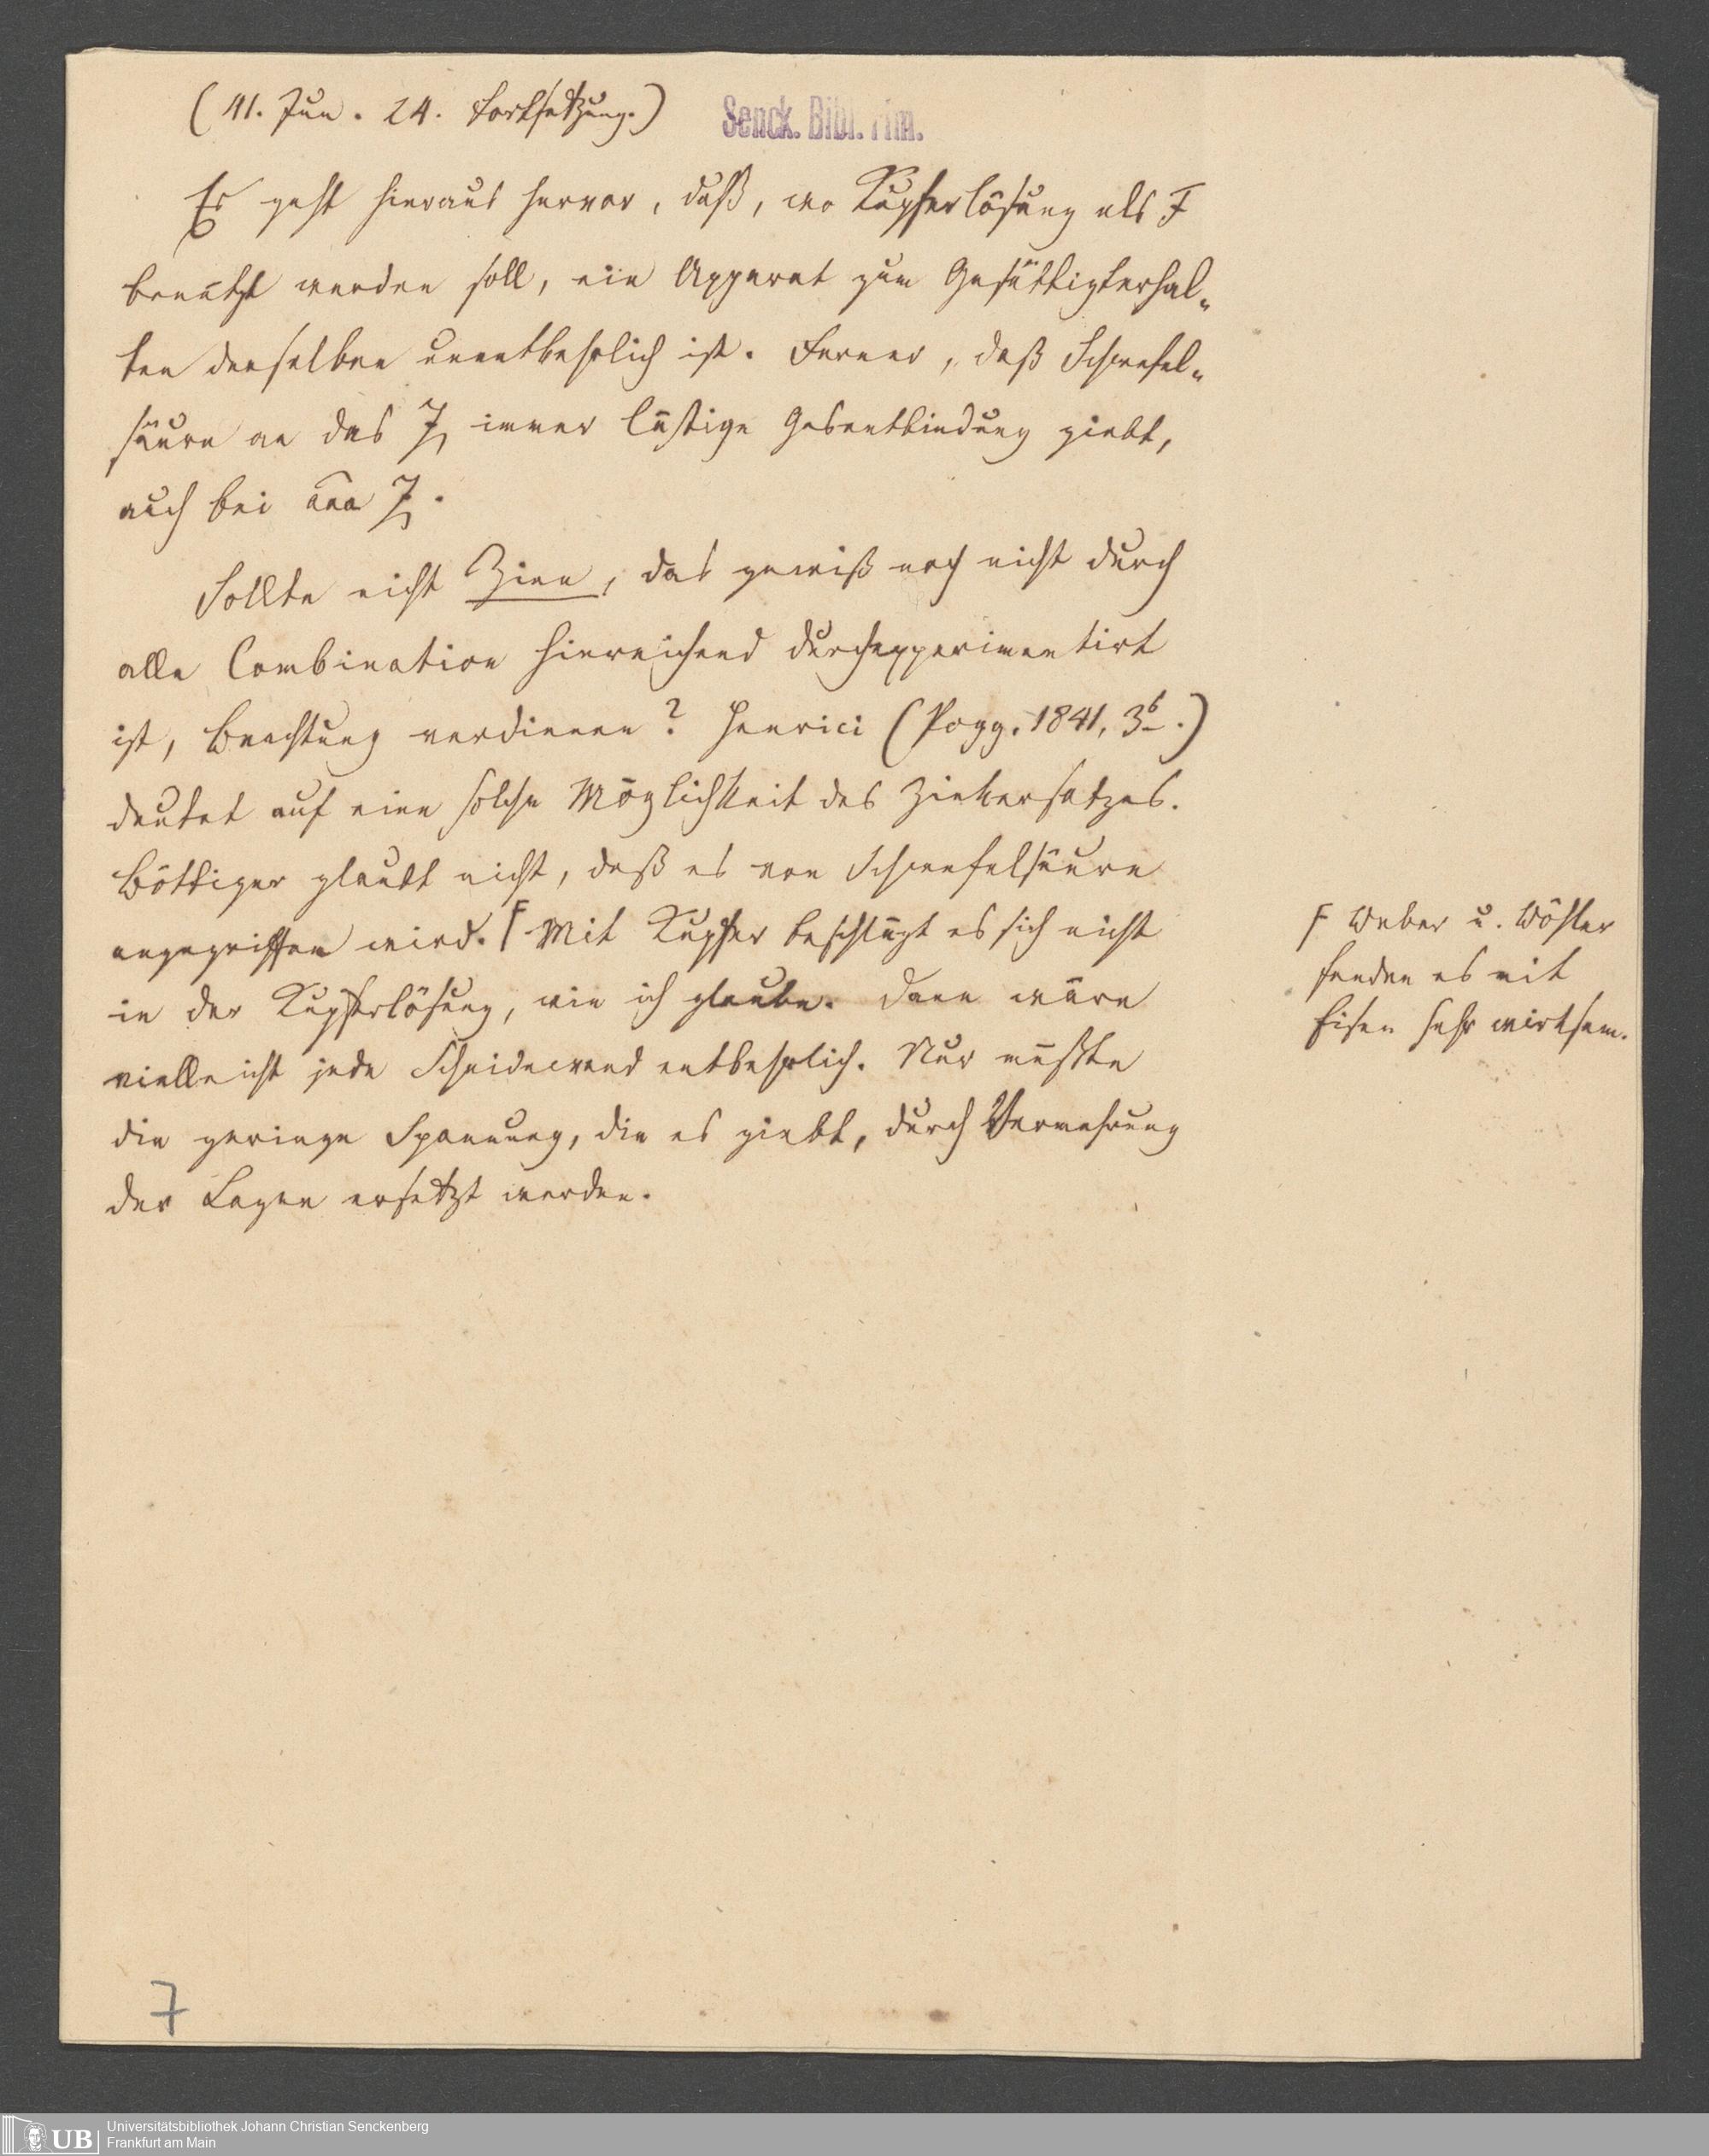 (41. Jun. 24. Fortsetzung.)
Senck. Bibl. Ffm.
Es geht hieraus hervor, daß, wo Kupferlösung als F
benutzt werden soll, ein Apparat zum Gesättigterhal„
ten derselben unentbehrlich ist. Ferner, daß Schwefel„
säure an das Z immer lästige Gasentbindung giebt,
auch bei Z.
Sollte nicht Zinn, das gewiß noch nicht durch
alle Combination hinreichend durchexperimentirt
ist, Beachtung verdienen? Henrici (Pogg. 1841, 3.)
deutet auf eine solche Möglichkeit des Zinkersatzes.
Böttiger glaubt nicht, daß es von Schwefelsäure
angegriffen wird. F Mit Kupfer beschlägt es sich nicht
in der Kupferlösung, wie ich glaube. Dann wäre
vielleicht jede Scheidewand entbehrlich. Nur müßte
die geringe Spannung, die es giebt, durch Vermehrung
der Lagen ersetzt werden.
F Weber u. Wöhler
fanden es mit
Eisen sehr wirksam.
7
UB
Universitätsbibliothek Johann Christian Senckenberg
Frankfurt am Main